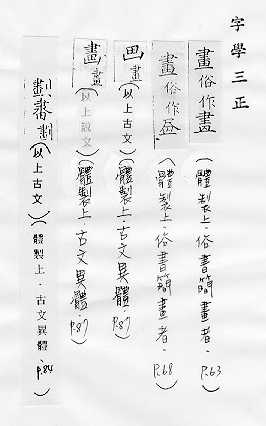 字學三正
畫俗作畵（體製上·俗書簡畫者·P.63）
畫俗作（體製上·俗書簡畫者·P.68）
畫（以上古文）（體製上·古文異體·P.87）
畫（以上說文）（體製上·古文異體·P.87）
（以上古文）（體製上·古文異體·P.84）